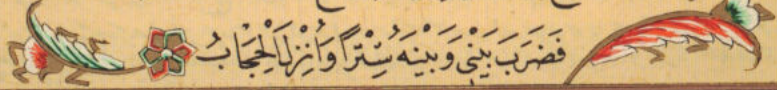 فَضَرَبَ بَيْنِي وَبَيْنَهُ سِتْرًا وَأُنْزِلَ الْحِجَابُ